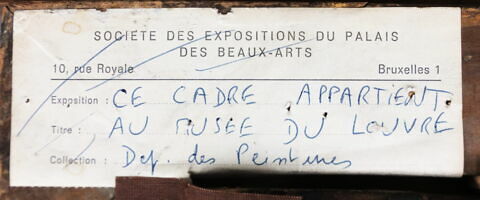 SOCIÉTÉ DES EXPOSITIONS DU PALAIS
DES BEAUX-ARTS
10, rue Royale Bruxelles 1
Exposition : CE CADRE APPARTIENT
Titre : AU MUSEE DU LOUVRE
Collection : Dep. des Peintures